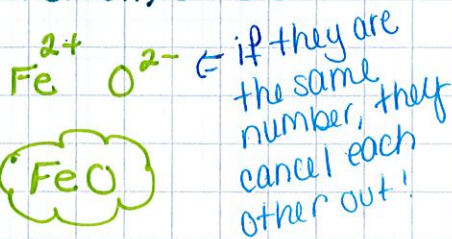 Fe²⁺ O²⁻ ← if they are
the same
number, they
cancel each
other out!
FeO